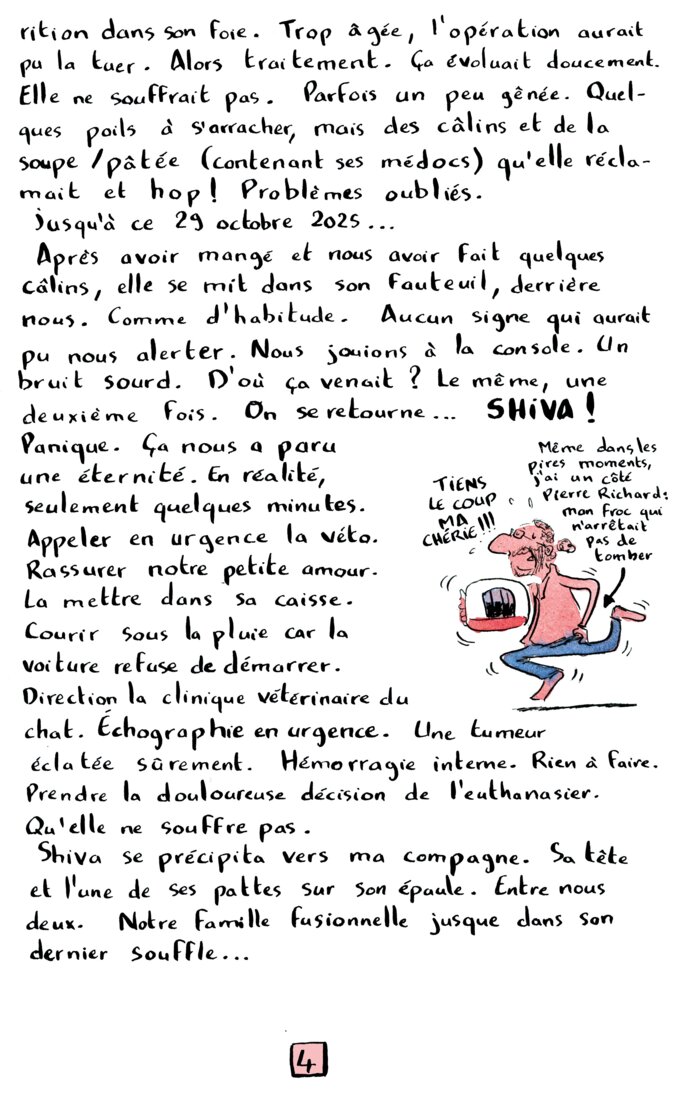 rition dans son foie. Trop âgée, l'opération aurait
pu la tuer. Alors traitement. Ça évoluait doucement.
Elle ne souffrait pas. Parfois un peu gênée. Quel-
ques poils à s'arracher, mais des câlins et de la
soupe/pâtée (contenant ses médocs) qu'elle récla-
mait et hop! Problèmes oubliés.
jusqu'à ce 29 octobre 2025...
Après avoir mangé et nous avoir fait quelques
câlins, elle se mit dans son fauteuil, derrière
nous. Comme d'habitude. Aucun signe qui aurait
pu nous alerter. Nous jouions à la console. Un
bruit sourd. D'où ça venait? Le même, une
deuxième fois. On se retourne... SHiVA!
Panique. Ça nous a paru
une éternité. En réalité,
seulement quelques minutes.
Appeler en urgence la véto.
Rassurer notre petite amour.
La mettre dans sa caisse.
Courir sous la pluie car la
voiture refuse de démarrer.
Direction la clinique vétérinaire du
chat. Échographie en urgence. Une tumeur
éclatée sûrement. Hémorragie interne. Rien à faire.
Prendre la douloureuse décision de l'euthanasier.
Qu'elle ne souffre pas.
Shiva se précipita vers ma compagne. Sa tête
et l'une de ses pattes sur son épaule. Entre nous
deux. Notre famille fusionnelle jusque dans son
dernier souffle...
TIENS
LE COUP
MA
CHÉRIE!!!
Même dans les
pires moments,
j'ai un côté
Pierre Richard:
mon froc qui
n'arrêtait
pas de
tomber
4